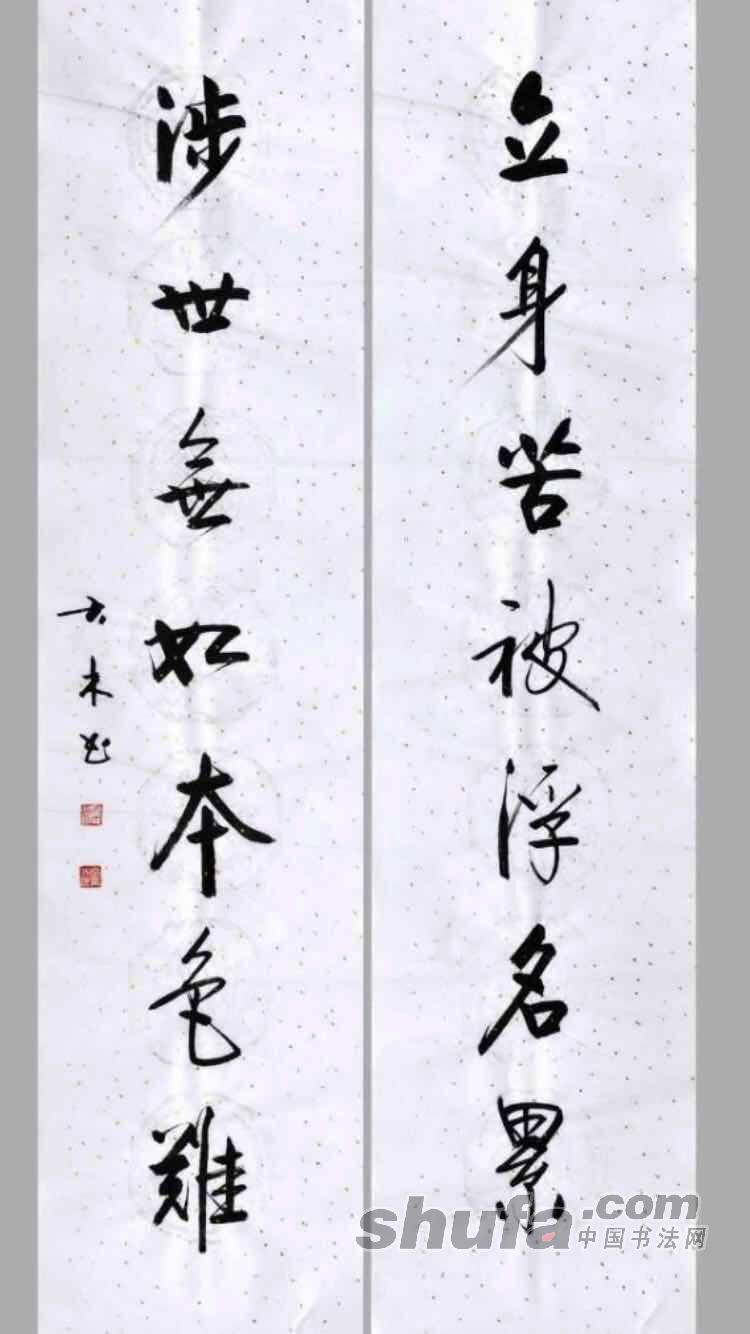 立身苦被浮名累
涉世無如本色難
shufa.com
中国书法网